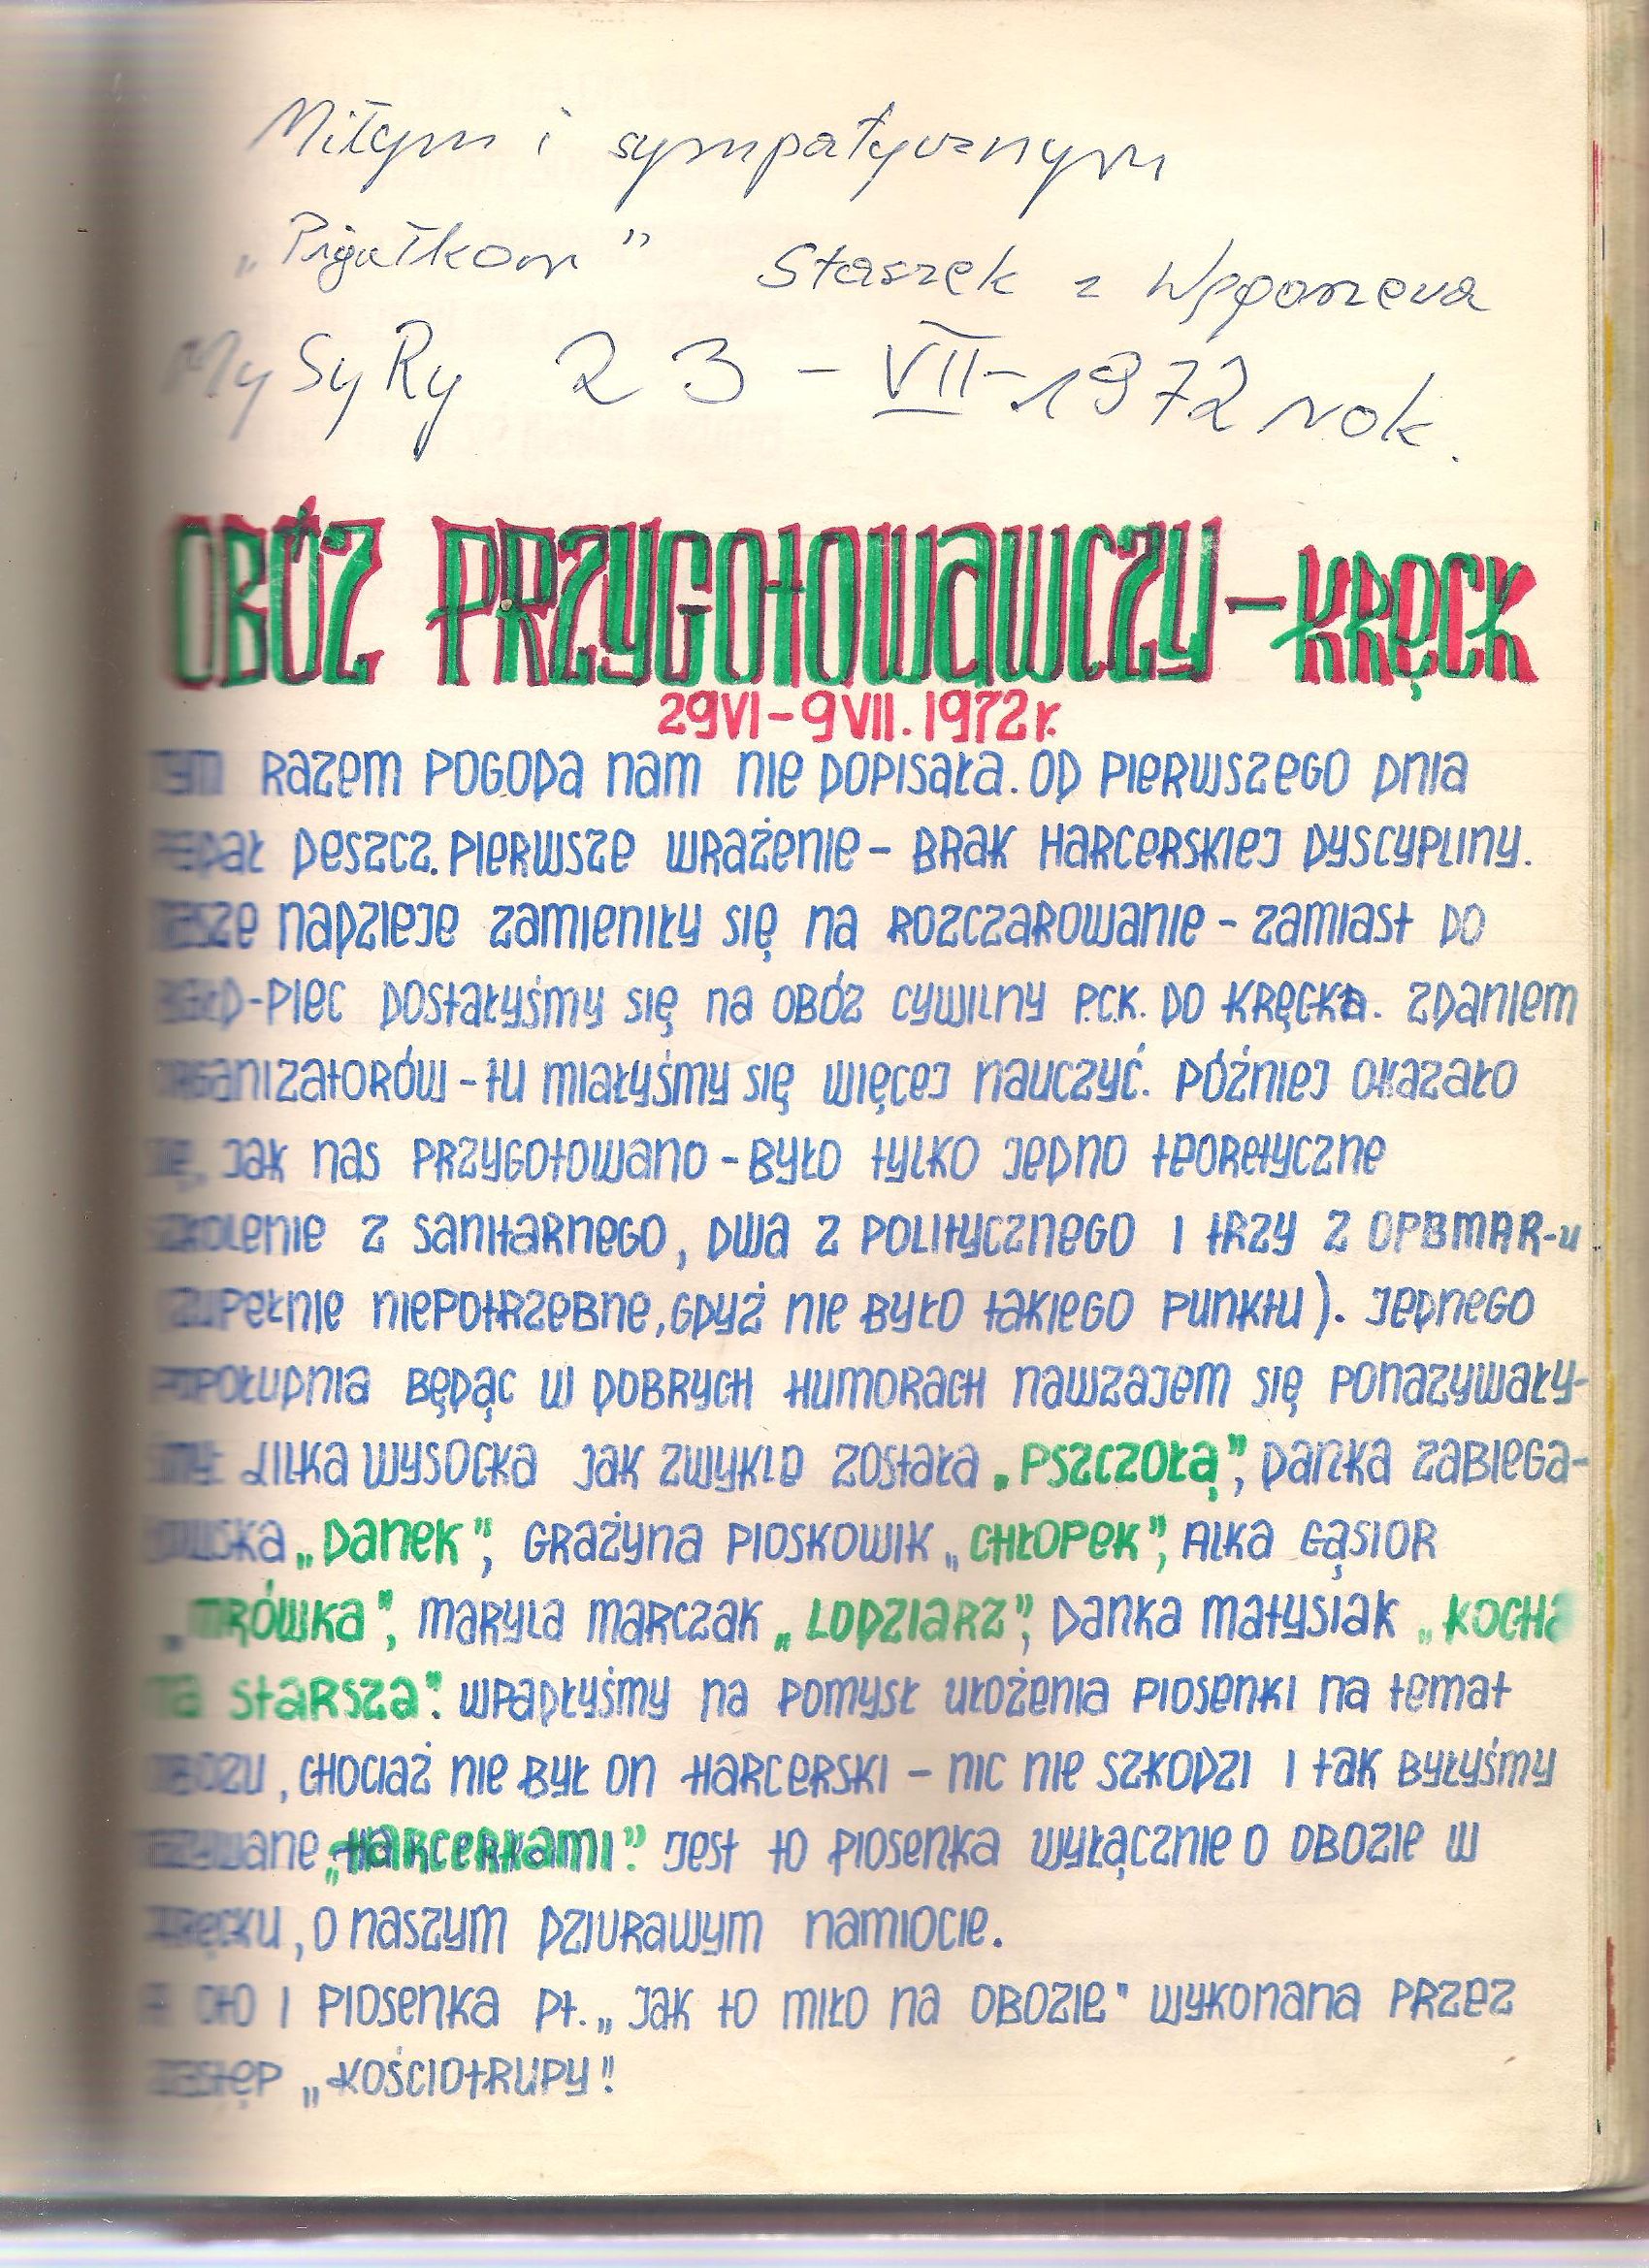 Miłym i sympatycznym
„Pigułkom" Staszek z Węgorzewa
MySyRy 23-VII-1972 rok.
OBÓZ PRZYGOTOWAWCZY-KRĘCK
29VI-9VII.1972r.
TYM RAZEM POGODA NAM NIE DOPISAŁA. OD PIERWSZEGO DNIA
PADAŁ DESZCZ. PIERWSZE WRAŻENIE - BRAK HARCERSKIEJ DYSCYPLINY.
NASZE NADZIEJE ZAMIENIŁY SIĘ NA ROZCZAROWANIE - ZAMIAST DO
-PIEC DOSTAŁYŚMY SIĘ NA OBÓZ CYWILNY P.C.K. DO KRĘCKA. ZDANIEM
ORGANIZATORÓW - TU MIAŁYŚMY SIĘ WIĘCEJ NAUCZYĆ. PÓŹNIEJ OKAZAŁO
SIĘ, JAK NAS PRZYGOTOWANO - BYŁO TYLKO JEDNO TEORETYCZNE
SZKOLENIE Z SANITARNEGO, DWA Z POLITYCZNEGO I TRZY Z OPBMAR-u
ZUPEŁNIE NIEPOTRZEBNE, GDYŻ NIE BYŁO TAKIEGO PUNKTU). JEDNEGO
POPOŁUDNIA BĘDĄC W DOBRYCH HUMORACH NAWZAJEM SIĘ PONAZYWAŁY-
ŚMY: LILKA WYSOCKA JAK ZWYKLE ZOSTAŁA „PSZCZOŁĄ", DANKA ZABIEGA-
ŁOWSKA „DANEK", GRAŻYNA PIOSKOWIK „CHŁOPEK", ALKA GĄSIOR
„MRÓWKA", MARYLA MARCZAK „LODZIARZ", DANKA MATYSIAK „KOCHA
NA STARSZA". WPADŁYŚMY NA POMYSŁ UŁOŻENIA PIOSENKI NA TEMAT
OBOZU, CHOCIAŻ NIE BYŁ ON HARCERSKI - NIC NIE SZKODZI I TAK BYŁYŚMY
NAZYWANE „HARCERKAMI". JEST TO PIOSENKA WYŁĄCZNIE O OBOZIE W
KRĘCKU, O NASZYM DZIURAWYM NAMIOCIE.
A OTO I PIOSENKA PT. „JAK TO MIŁO NA OBOZIE" WYKONANA PRZEZ
ZASTĘP „KOŚCIOTRUPY"!